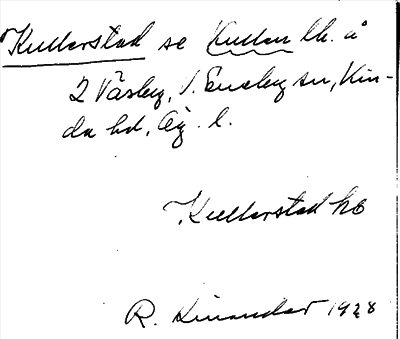 Kullerstad se Kullen lh. å
2 Väsby, V. Eneby sn, Kin-
da hd, Ög. l.
Kullerstad hb
R. Kinander 1928